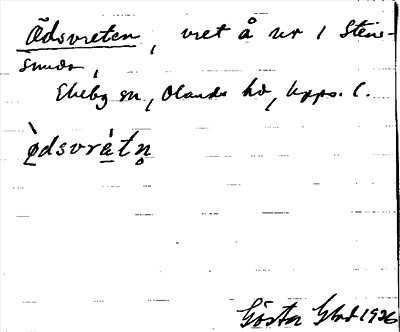 Ädsvreten, vret å nr 1 Stens-
sunda,
Ekeby sn, Olands hd, Upps. l.
ø̀dsvrà̱tn̥
Gösta Gbd 1926